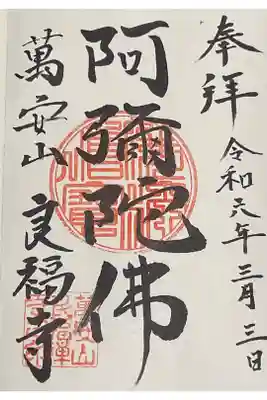 奉拝
令和六年三月三日
阿彌陀佛
萬安山
良福寺